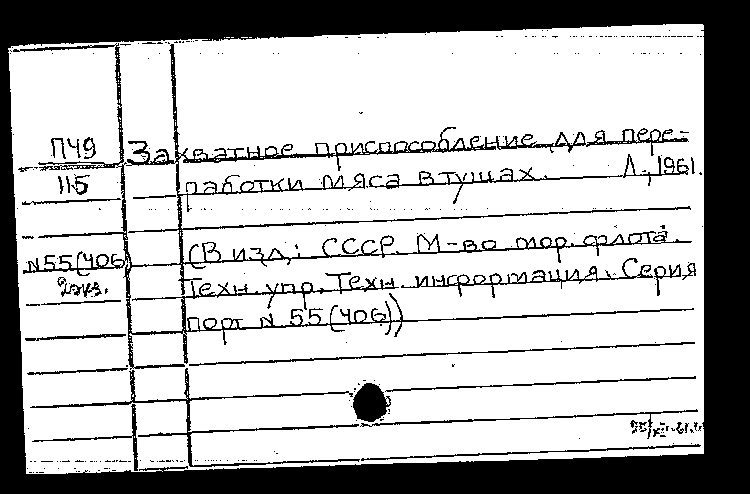 П49
115
N55(406)
2 экз.
Захватное приспособление для пере-
работки мяса в тушах. Л., 1961.
(В изд.: СССР. М-во мор. флота.
Техн. упр. Техн. информация. Серия
порт N 55(406))